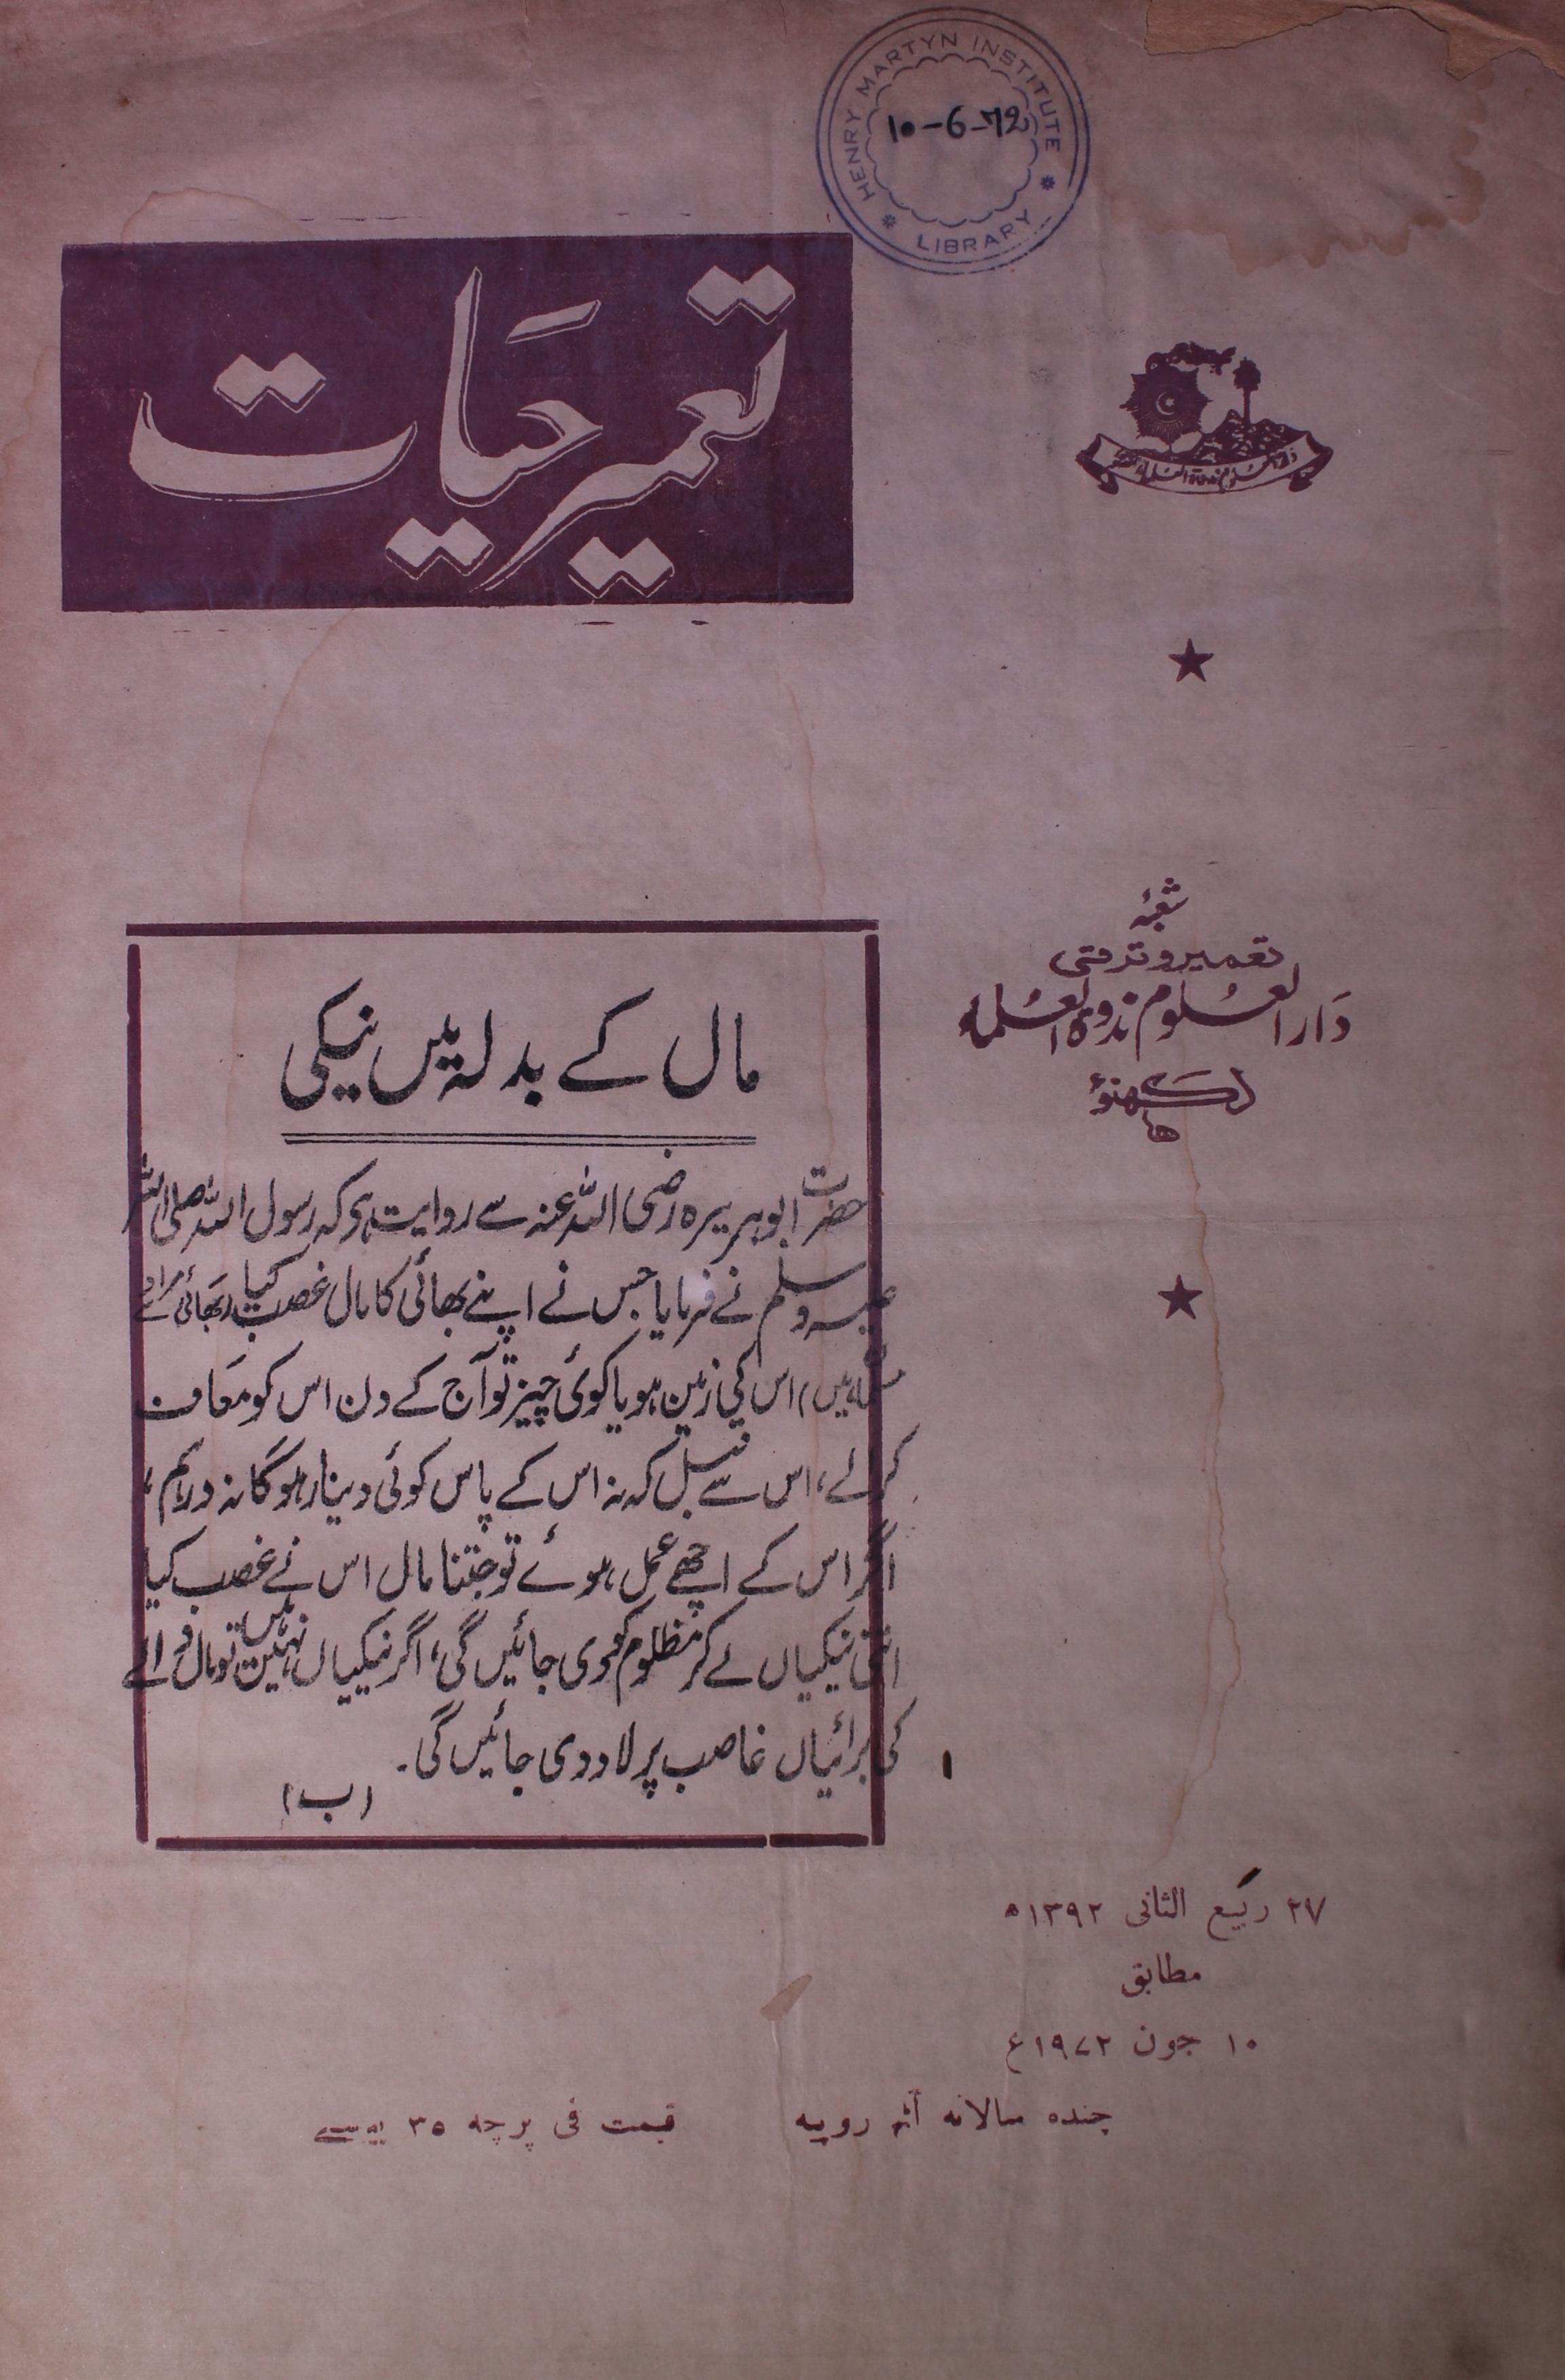 HENRY MARTYN INSTITUTE
10-6-72
LIBRARY
تعمیر حیات
دارالعلوم ندوۃ العلماء
شعبۂ
تعمیر و ترقی
دارالعلوم ندوۃ العلماء
لکھنؤ
مال کے بدلہ میں نیکی
حضرت ابوہریرہ رضی اللہ عنہ سے روایت ہی کہ رسول اللہ صلی اللہ
علیہ وسلم نے فرمایا جس نے اپنے بھائی کا مال غصب کیا (بھائی سے مراد
مسلم ہیں) اس کی زمین ہو یا کوئی چیز تو آج کے دن اس کو معاف
کرا لے، اس سے قبل کہ نہ اس کے پاس کوئی دینار ہوگا نہ درہم،
اگر اس کے اچھے عمل ہوئے تو جتنا مال اس نے غصب کیا
اتنی نیکیاں لے کر مظلوم کو دی جائیں گی، اگر نیکیاں نہیں ہیں تو مال والے
کی برائیاں غاصب پر لاد دی جائیں گی۔
(ب)
۲۷ ربیع الثانی ۱۳۹۲ھ
مطابق
۱۰ جون ۱۹۷۲ع
چندہ سالانہ آٹھ روپیہ
قیمت فی پرچہ ۳۵ پیسے